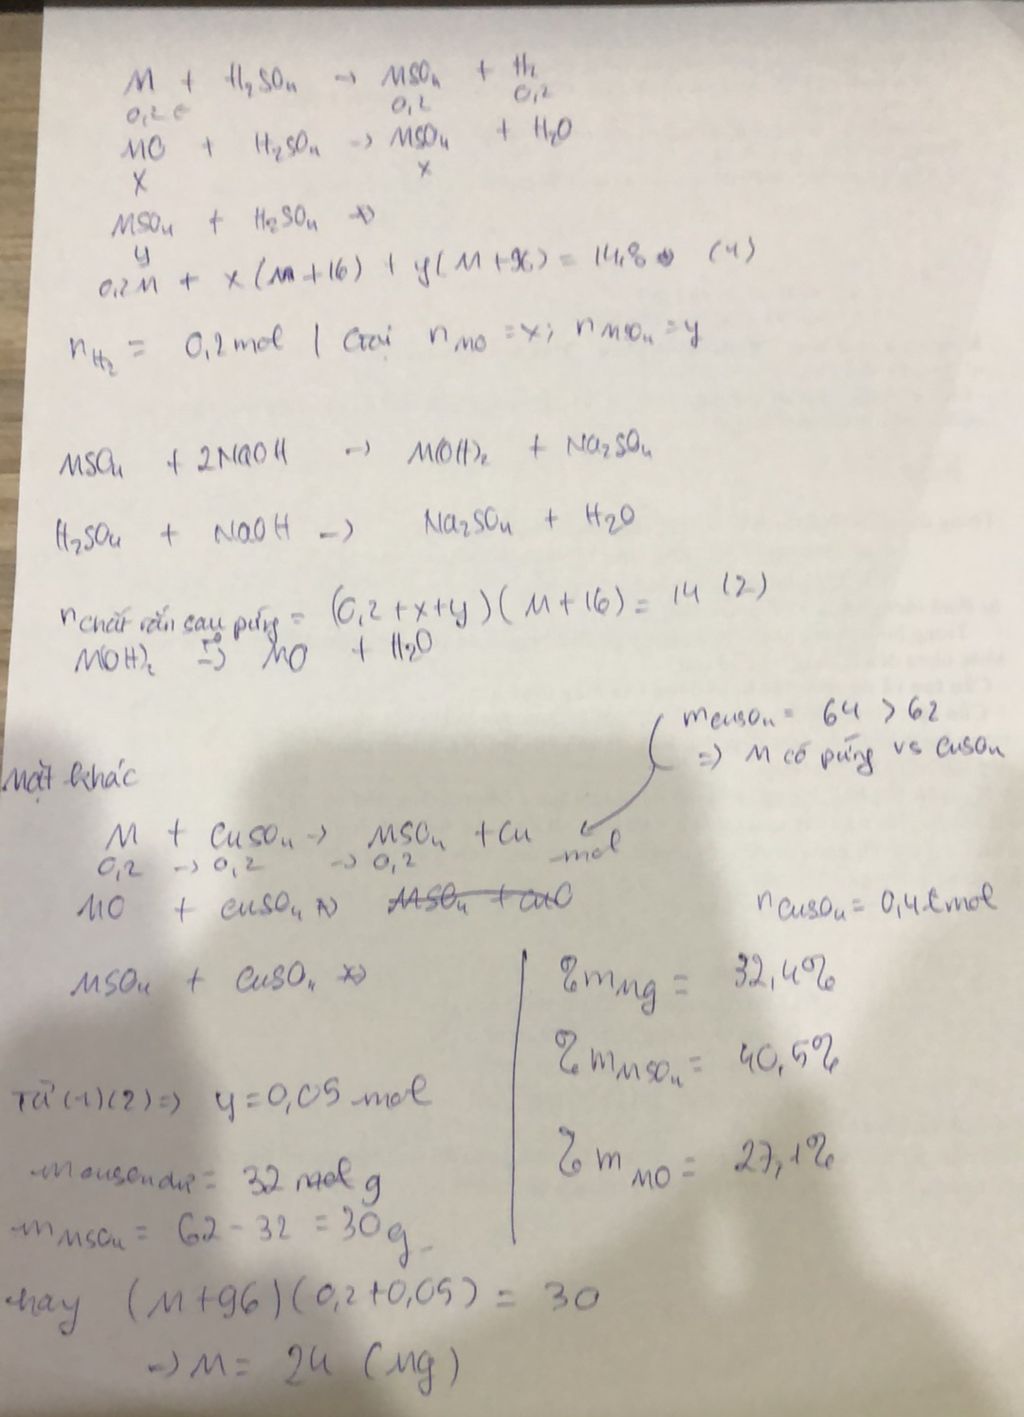 M + H₂SO₄ → MSO₄ + H₂
0,2 ← 0,2 0,2
MO + H₂SO₄ → MSO₄ + H₂O
x x
MSO₄ + H₂SO₄ ↛
y
0,2M + x(M+16) + y(M+96) = 14,8 (1)
nH₂ = 0,2 mol | Gọi nMO = x; nMSO₄ = y
MSO₄ + 2NaOH → M(OH)₂ + Na₂SO₄
H₂SO₄ + NaOH → Na₂SO₄ + H₂O
n chất rắn sau pứng = (0,2+x+y)(M+16) = 14 (2)
M(OH)₂ → MO + H₂O
mCuSO₄ = 64 > 62
⇒ M có pứng vs CuSO₄
Mặt khác
M + CuSO₄ → MSO₄ + Cu mol
0,2 → 0,2 → 0,2
MO + CuSO₄ ↛ MSO₄ + CuO
nCuSO₄ = 0,4 mol
MSO₄ + CuSO₄ ↛
%mMg = 32,4%
%mMSO₄ = 40,5%
Từ (1)(2) ⇒ y = 0,05 mol
%mMO = 27,1%
mCuSO₄ dư = 32 g
mMSO₄ = 62 - 32 = 30g
hay (M+96)(0,2+0,05) = 30
→ M = 24 (Mg)